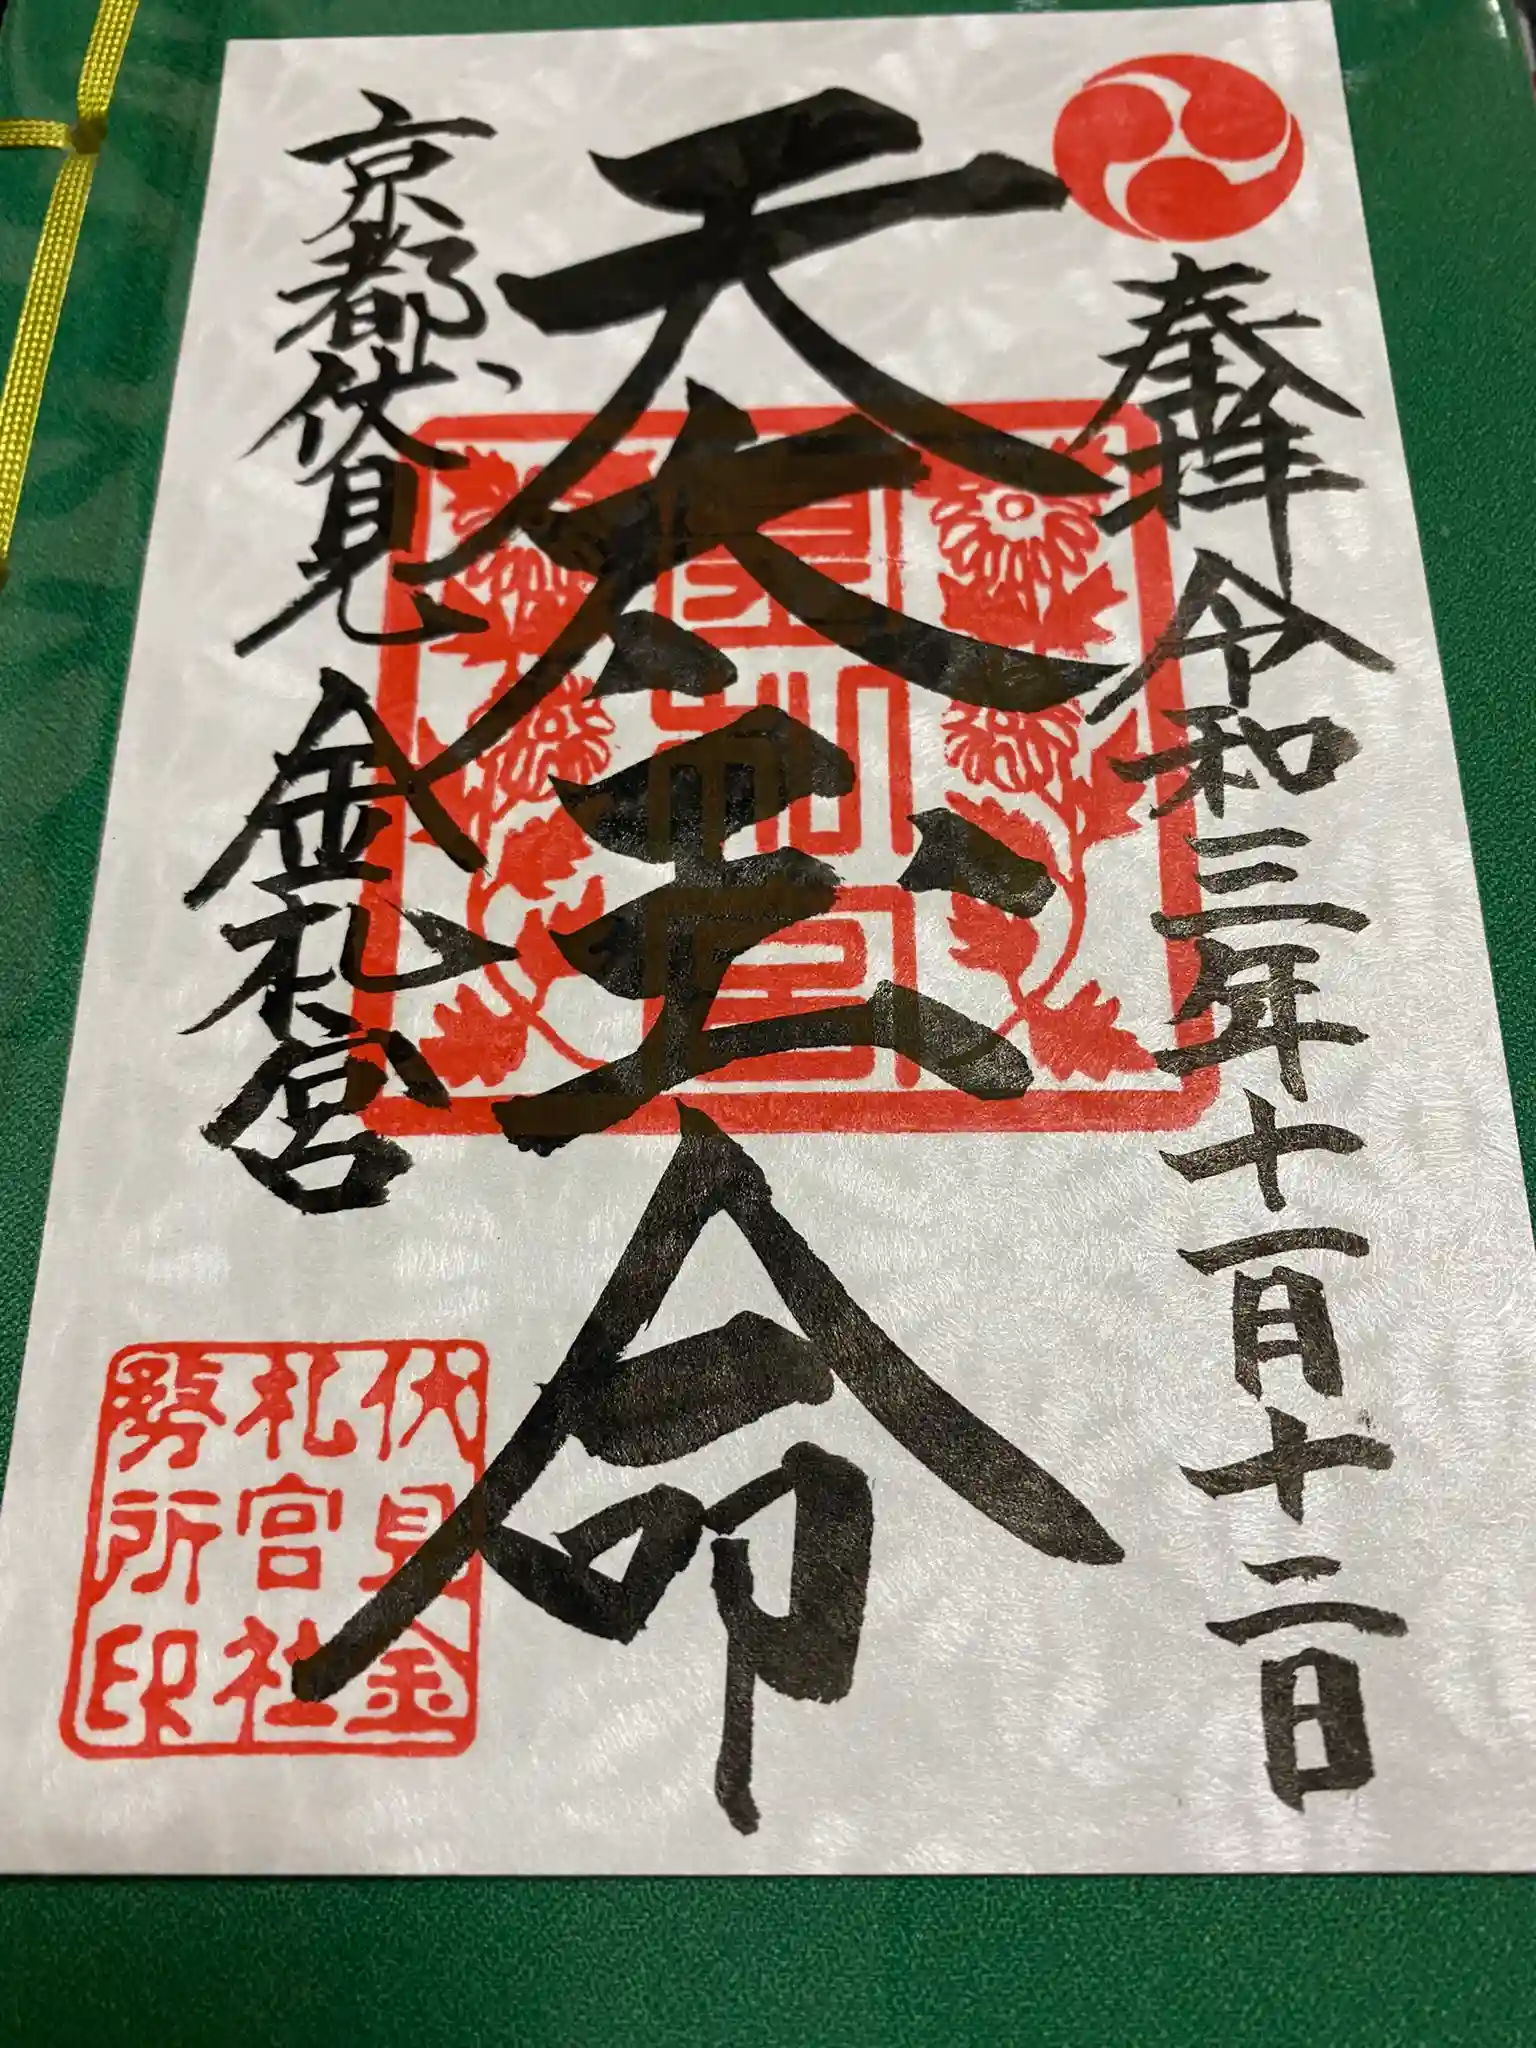 奉拝 令和三年十一月十二日
天太玉命
京都伏見 金札宮
金札宮
伏見金
札宮社
務所印